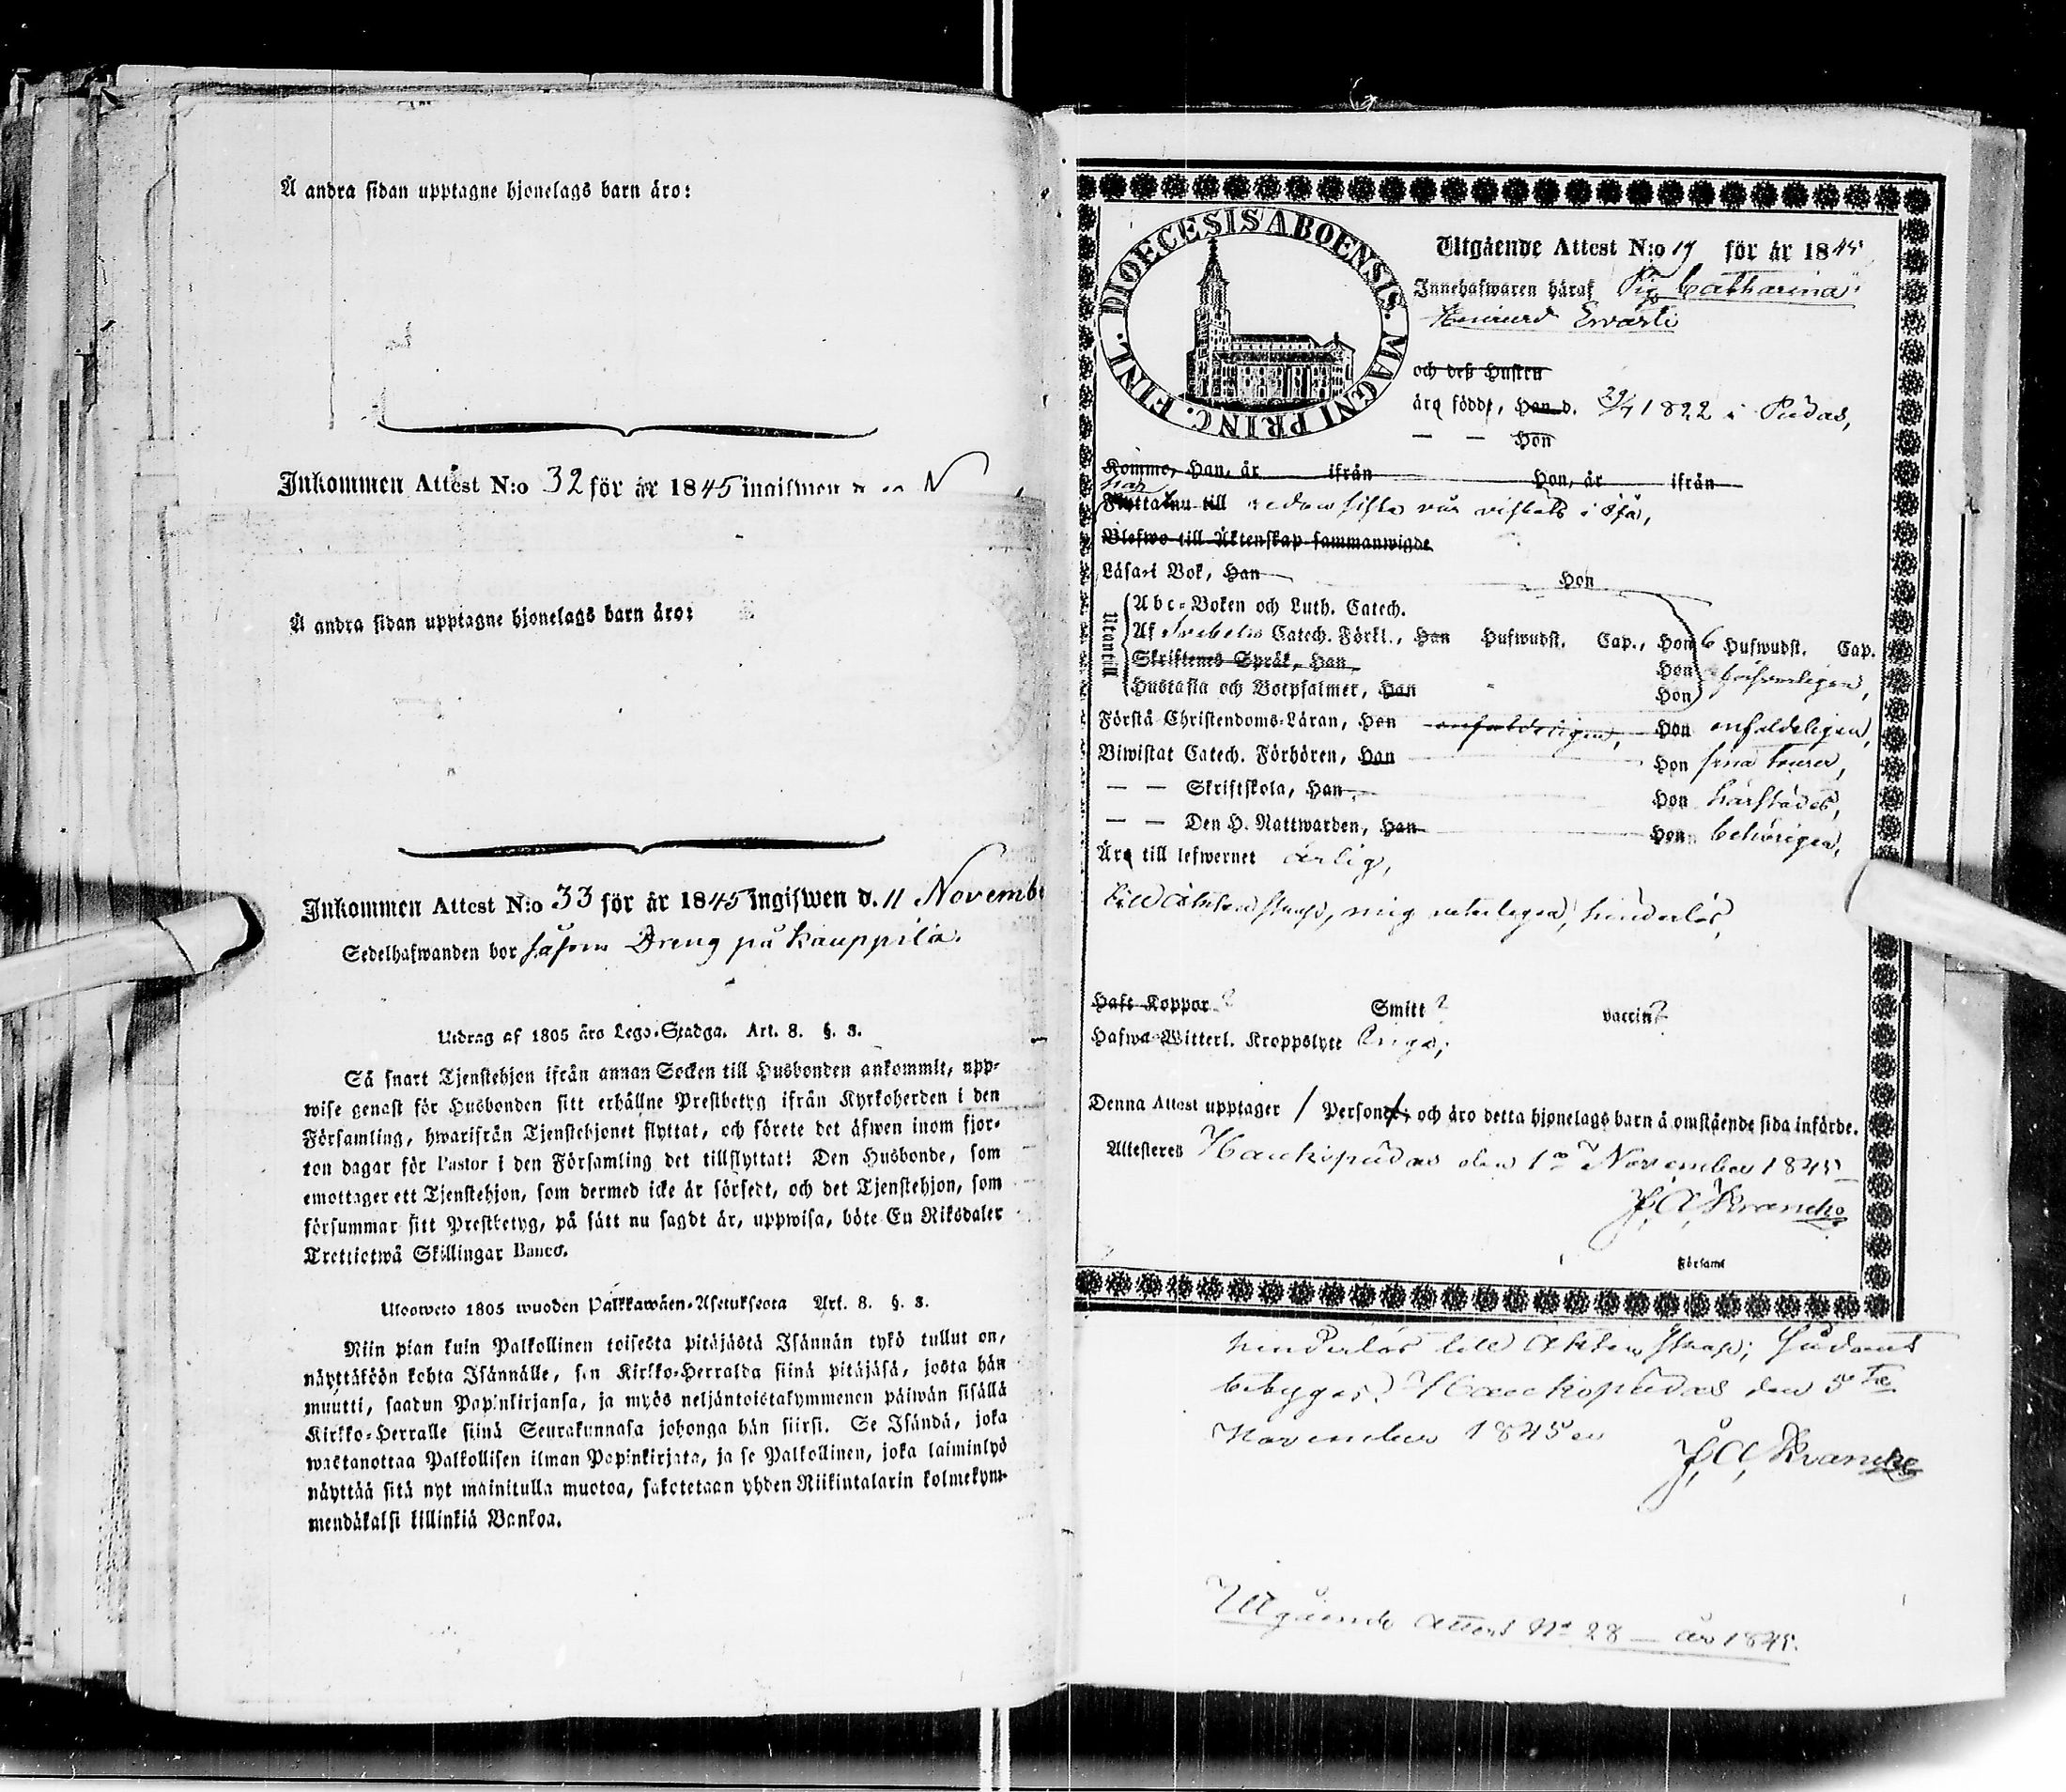 Å andra sidan upptagne hjonelags barn äro:
Inkommen Attest N:o 32 för år 1845 ingifwen N
Å andra sidan upptagne hjonelags barn äro:
Inkommen Attest N:o 33 för år 1845 ingifwen d. 11 Novembe
Sedelhafwanden bor såsom Dreng på Kauppila.
Utdrag af 1805 års Lego-Stadga. Art. 8. §. 3.
Så snart Tjenstehjon ifrån annan Socken till Husbonden ankommit, upp-
wise genast för Husbonden sitt erhållne Prestbetyg ifrån Kyrkoherden i den
Församling, hwarifrån Tjenstehjonet flyttat, och förete det äfwen inom fjor-
ton dagar för Pastor i den Församling det tillflyttat! Den Husbonde, som
emottager ett Tjenstehjon, som dermed icke är försedt, och det Tjenstehjon, som
försummar sitt Prestbetyg, på sätt nu sagdt är, uppwisa, böte En Riksdaler
Trettietwå Skillingar Banco.
Ulosweto 1805 wuoden Palkkawäen-Asetuksesta Art. 8. §. 3.
Niin pian kuin Palkollinen toisesta pitäjästä Isännän tykö tullut on,
näyttäköön kohta Isännälle, sen Kirkko-Herralda siinä pitäjäsä, josta hän
muutti, saadun Papinkirjansa, ja myös neljäntoistakymmenen päiwän sisällä
Kirkko-Herralle siinä Seurakunnasa johonga hän siirsi. Se Isändä, joka
wastanottaa Palkollisen ilman Papinkirjata, ja se Palkollinen, joka laiminlyö
näyttää sitä nyt mainitulla muotoa, sakotetaan yhden Riikintalarin kolmekym-
mendäkaksi killinkiä Bankoa.
DIOECESIS ABOENSIS. MAGNI PRINC. FINL.
Utgående Attest N:o 19 för år 1845
Innehafwaren häraf Pig. Catharina
Ewasti
och deß Hustru
äro födde, Han d. 1822 i Pudas,
— — Hon
Komme, Han, år ifrån Hon, år ifrån
har
Flytta nu till sedan sista vår vistats i
Blefwo till Äktenskap sammanwigde
Läsa i Bok, Han Hon
Utantill
Abc-Boken och Luth. Catech.
Af Svebelii Catech. Förkl., Han Hufwudst. Cap., Hon 6 Hufwudst. Cap.
Skriftenes Språk, Han Hon försvarligen,
Hustafla och Botpsalmer, Han Hon
Förstå Christendoms-Läran, Han enfaldeligen, Hon enfaldeligen,
Biwistat Catech. Förhören, Han Hon sina tourer,
— — Skriftskola, Han Hon härstädes,
— — Den H. Nattwarden, Han Hon behörigen,
Äro till lefwernet ärlig,
till äktenskap, mig veterligen, hinderlös,
Haft Koppor ? Smitt ? vaccin ?
Hafwa Witterl. Kroppslyte inga,
Denna Attest upptager 1 Person, och äro detta hjonelags barn å omstående sida införde.
Attesteres Haukipudas den 1 November 1845
J. A. Krancke
Församl
hinderlös till Äktenskap; Sådant
betygar. Haukipudas den 5te
November 1845
J. A. Krancke
Utgående Attest No 28 — år 1845.